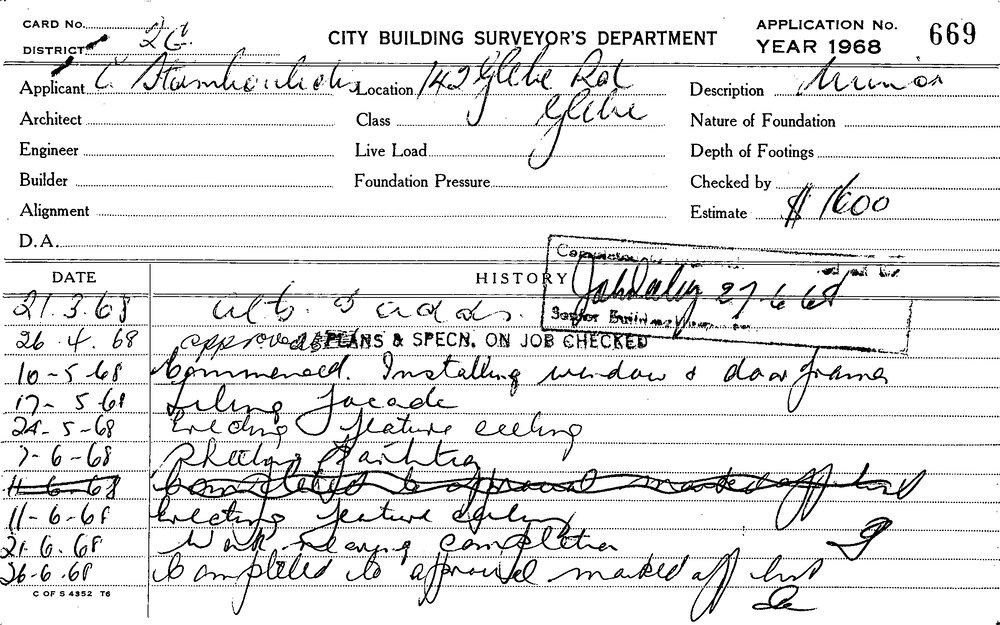 CARD No.
DISTRICT 2G.
CITY BUILDING SURVEYOR'S DEPARTMENT
APPLICATION No. 669
YEAR 1968
Applicant C Location 142 Glebe Rd Description Minor
Architect Class Glebe Nature of Foundation
Engineer Live Load Depth of Footings
Builder Foundation Pressure Checked by
Alignment Estimate $ 1600
D.A.
DATE HISTORY
27 6 68
21.3.68 alts & adds.
26.4.68 approved PLANS & SPECN. ON JOB CHECKED
10-5-68 Commenced. Installing window & door frames
17-5-68 Tiling facade
24-5-68 Erecting feature ceiling
7-6-68 Painting
11-6-68 Completed to approval marked off list
11-6-68 Erecting feature ceiling
21.6.68 Work nearing completion
26-6.68 Completed to approval marked off list
C OF S 4352 T6